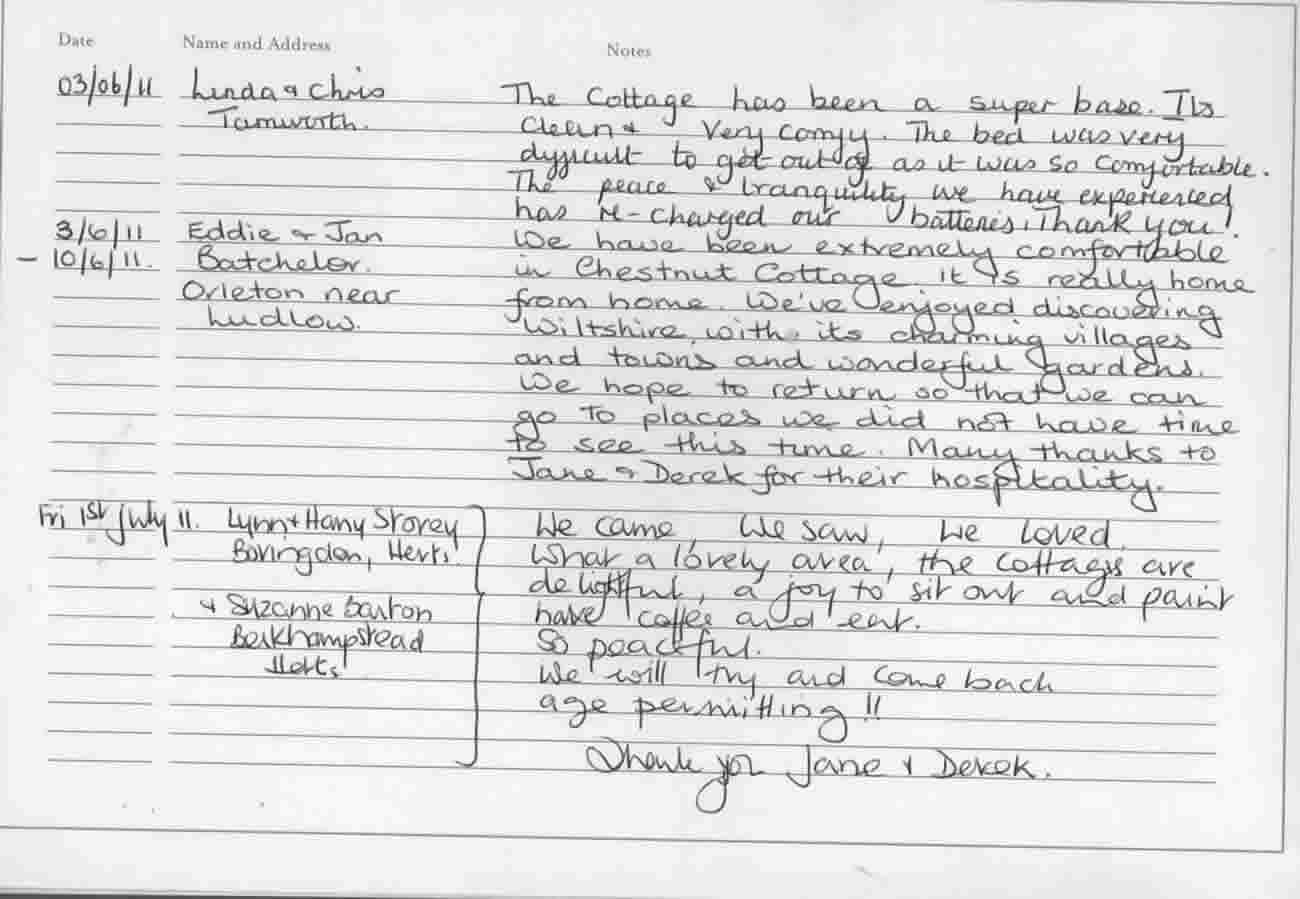 Date Name and Address Notes
03/06/11 Linda & Chris The Cottage has been a super base. Its
Tamworth. Clean & Very comfy. The bed was very
difficult to get out of as it was so comfortable.
The peace & tranquility we have experienced
has re-charged our batteries. Thank you!
3/6/11 Eddie & Jan We have been extremely comfortable
- 10/6/11. Batchelor. in Chestnut Cottage. it is really home
Orleton near from home. We've enjoyed discovering
Ludlow. Wiltshire, with its charming villages
and towns and wonderful gardens.
We hope to return so that we can
go to places we did not have time
to see this time. Many thanks to
Jane & Derek for their hospitality.
Fri 1st July 11. Lynn & Harry Storey We came, We saw, We loved.
Bovingdon, Herts. What a lovely area, the cottages are
delightful, a joy to sit out and paint
& Suzanne Barton have coffee and eat.
Berkhampstead So peaceful.
Herts We will try and come back
age permitting!!
Thank you Jane & Derek.